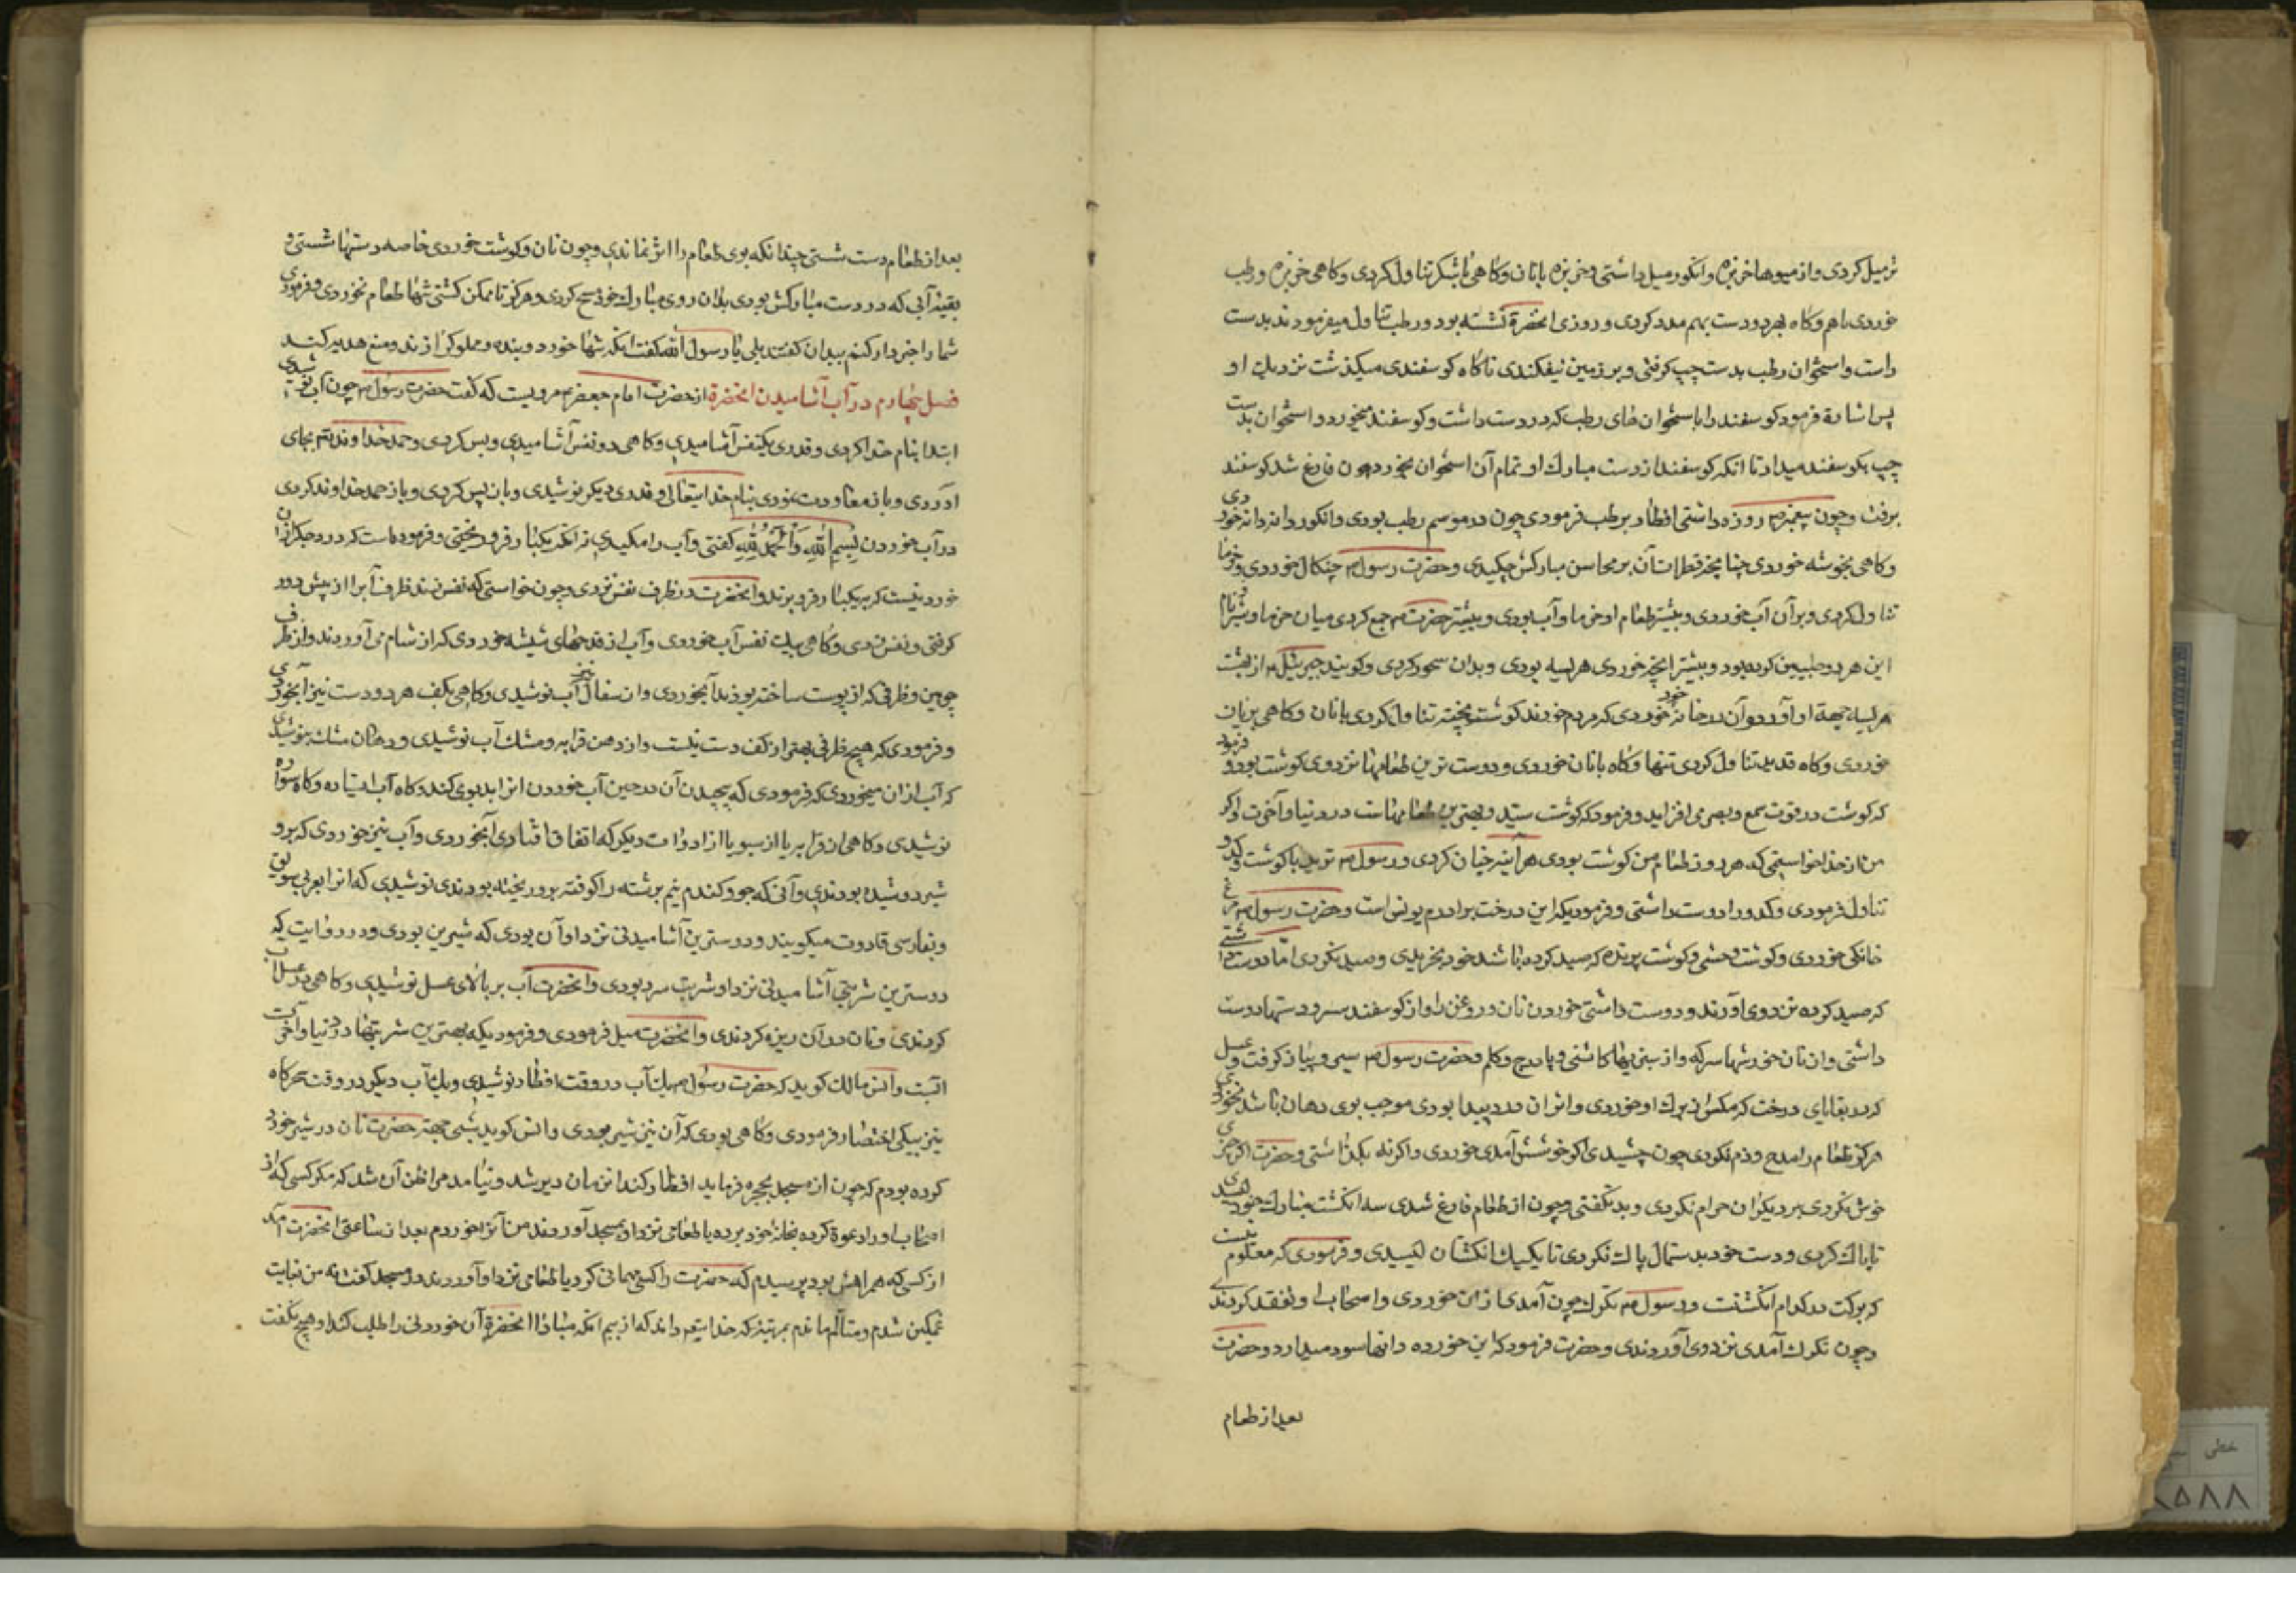 تر میل کردی و از میوها خربزه و انکور میل داشتی و خربزه با نان و کاهی با شکر تناول کردی و کاهی خربزه و رطب
خوردی با هم و کاه بهر دو دست بهم مدد کردی و روزی انحضرة نشسته بود و رطب تناول میفرمودند بدست
راست و استخوان رطب بدست چپ کرفتی و بر زمین نیفکندی ناکاه کوسفندی میکذشت نزدیک او
پس اشارة فرمود کوسفند را باستخوان های رطب که در دست داشت و کوسفند میخورد و استخوان بدست
چپ بکوسفند میداد تا انکه کوسفند از دست مبارک او تمام آن استخوان بخورد چون فارغ شد کوسفند
برفت و چون پیغمبر ص روزه داشتی افطار برطب فرمودی چون در موسم رطب بودی و انکور دانه دانه خوردی
و کاهی بخوشه خوردی چنانچه قطرات آن بر محاسن مبارکش چکیدی و حضرت رسول ص چنکال خوردی و خرما
تناول کردی و بر آن آب خوردی و بیشتر طعام او خرما و آب بودی و بیشتر حضرت ص جمع کردی میان خرما و شیر و نام
این هر دو طیبین کرده بود و بیشتر انچه خوردی هریسه بودی و بدان سحور کردی و کویند جبرئیل ع از بهشت
هریسه جهة او آورد و آن در خانه خود خوردی که مردم خورند کوشت پخته تناول کردی با نان و کاهی بریان
خوردی و کاه قدید تناول کردی تنها و کاه با نان خوردی و دوست ترین طعامها نزد وی کوشت بود و فرمود
که کوشت در قوت سمع و بصر می افزاید و فرمود که کوشت سید و بهترین طعامهاست در دنیا و آخرت و اکر
من از خدا خواستمی که هر روز طعام من کوشت بودی هر آینه چنان کردی و رسول ص ترید با کوشت و کدو
تناول فرمودی و کدو را دوست داشتی و فرمودی که این درخت برادرم یونس است و حضرت رسول ص مرغ
خانکی خوردی و کوشت وحشی و کوشت پرنده که صید کرده باشند خود بخریدی و صید نکردی اما دوست داشتی
که صید کرده نزد وی اورند و دوست داشتی خوردن نان و روغن را و از کوسفند سر و دستها دوست
داشتی و از نان خورشها سرکه و از سبزیها کاسنی و بادروج و کلم و حضرت رسول ص سیر و پیاز کرفت و عسل
که در بقایای درخت که مکس از برک او خوردی و اثر ان در و پیدا بودی موجب بوی دهان باشد نخوردی
هرکز طعام را مدح و ذم نکردی چون چشیدی اکر خوشش آمدی خوردی و اکر نه بکذاشتی و حضرت اکر چیزی
خوش نکردی بر دیکران حرام نکردی و بد نکفتی و چون از طعام فارغ شدی سه انکشت مبارک خود لیسیدی
تا پاک کردی و دست خود بدستمال پاک نکردی تا یک یک انکشتان لیسیدی و فرمودی که معلوم نیست
که برکت در کدام انکشتست و رسول ص تکرک چون آمدی از ان خوردی و اصحاب را و تفقد کردندی
و چون تکرک آمدی نزد وی آوردندی و حضرت فرمود که این خورده دانها سود میدارد و حضرت
بعد از طعام
بعد از طعام دست شستی چندانکه بوی طعام را اثر نماندی و چون نان و کوشت خوردی خاصه دستها شستی و
بقیه آبی که در دست مبارکش بودی بدان روی مبارک خود مسح کردی و هرکز تا ممکن کشتی تنها طعام نخوردی و فرمودی
شما را خبردار کنم ببدان کفتند بلی یا رسول الله کفت انکه تنها خورد و بنده و مملوک را زند و منع هدیه کند
فصل چهارم در آب آشامیدن انحضرة از حضرت امام جعفر ع مرویست که کفت حضرت رسول ص چون آب نوشیدی
ابتدا بنام خدا کردی و قدری بیکنفس آشامیدی و کاهی دو نفس آشامیدی و بس کردی و حمد خداوند بتم بجای
اوردی و باز معاودت نمودی بنام خدایتعالی و قدری دیکر نوشیدی و باز بس کردی و باز حمد خداوند کردی
در آب خوردن بِسْمِ اللهِ وَ اَلْحَمْدُ لِلّهِ کفتی و آب را مکیدی نه انکه یکبار فرو ریختی و فرموده است که درد جکر از ان
خورد نیست که بیکبار فرو برند و انحضرت در ظرف نفس نزدی و چون خواستی که نفس زند ظرف آب را از پیش دور
کرفتی و نفس زدی و کاهی بیک نفس آب خوردی و آب از قدحهای شیشه خوردی که از شام می آوردند و از ظرف
چوبین و ظرفی که از پوست ساخته بودند آب خوردی و از سفال نیز آب نوشیدی و کاهی بکف هر دو دست نیز آب خوردی
و فرمودی که هیچ ظرفی بهتر از کف دست نیست و از دهن قرابه و مشک آب نوشیدی و دهان مشک نپوشیدی
که آب از ان میخوردی که فرمودی که پیچیدن آن در حین آب خوردن انرا بدبوی کند و کاه آب ایستاده و کاه سواره
نوشیدی و کاهی از قرابه یا از سبو یا از ادوات دیکر که اتفاق افتادی آب خوردی و آب نیز خوردی که بر و
شیر دوشیده بودندی و آبی که جو و کندم نیم برشته را کوفته بر و ریخته بودندی نوشیدی که انرا بعربی سویق
و بفارسی قاووت میکویند و دوسترین آشامیدنی نزد او آن بودی که شیرین بودی و در روایت که
دوسترین شربتی آشامیدنی نزد او شربت سرد بودی و انحضرت آب بر بالای عسل نوشیدی و کاهی در آب عسل
کردندی و نان در آن ریزه کردندی و انحضرت میل فرمودی و فرمودی که بهترین شربتها در دنیا و آخرت
آبست و انس مالک کوید که حضرت رسول ص یک آب در وقت افطار نوشیدی و یک آب دیکر در وقت سحرکاه
نیز بیکی اختصار فرمودی و کاهی بودی که آن نیز شیر بودی و انس کوید شبی جهة حضرت نان در شیر خورد
کرده بودم که چون از مسجد بحجره فرماید افطار کند ان زمان دیر شد و نیامد مرا ظن آن شد که مکر کسی که از
اصحاب او را دعوة کرده بخانه خود برده یا طعامی نزد او بمسجد آوردند من آنرا خوردم بعد از ساعتی انحضرت آمد
از کسی که همراهش بود پرسیدم که حضرت را کسی مهمانی کرد یا طعامی نزد او آوردند در مسجد کفت نه من بغایت
غمکین شدم و متألم ماندم بمرتبه که خدایتعم داند که از بیم انکه مبادا انحضرة آن خوردنی را طلب کند او هیچ نکفت